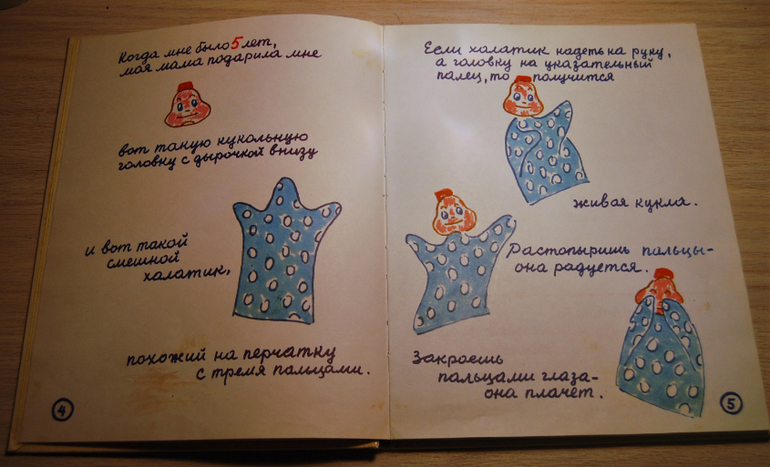 Когда мне было 5 лет,
моя мама подарила мне
вот такую кукольную
головку с дырочкой внизу
и вот такой
смешной
халатик,
похожий на перчатку
с тремя пальцами.
4
Если халатик надеть на руку,
а головку на указательный
палец, то получится
живая кукла.
Растопыришь пальцы-
она радуется.
Закроешь
пальцами глаза-
она плачет.
5